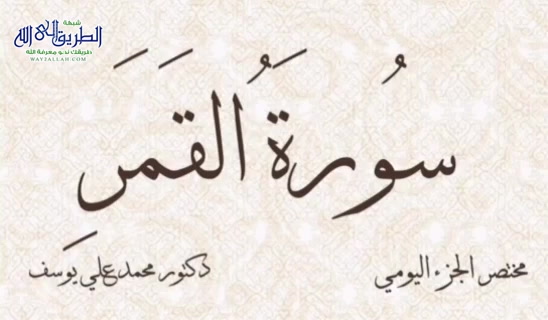 شبكة
الطريق إلى الله
طريقك نحو معرفة الله
WAY2ALLAH.COM
سُورَةُ القَمَرِ
مختصر الجزء اليومي
دكتور محمد علي يوسف